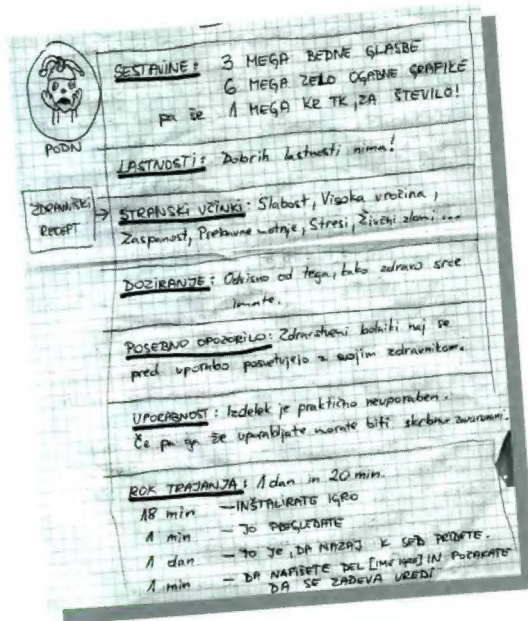 SESTAVINE: 3 MEGA BEDNE GLASBE
6 MEGA ZELO OGABNE GRAFIKE
pa še 1 MEGA KR TK, ZA ŠTEVILO!
PODN
LASTNOSTI: Dobrih lastnosti nima!
ZDRAVNIŠKI
RECEPT
STRANSKI UČINKI: Slabost, Visoka vročina,
Zaspanost, Prebavne motnje, Stresi, Živčni zlomi...
DOZIRANJE: Odvisno od tega, kako zdravo srce
imate.
POSEBNO OPOZORILO: Zdravstveni bolniki naj se
pred uporabo posvetujejo z svojim zdravnikom.
UPORABNOST: Izdelek je praktično neuporaben.
Če pa ga že uporabljate morate biti skrbno zavarovani.
ROK TRAJANJA: 1 dan in 20 min.
18 min - INŠTALIRATE IGRO
1 min - JO POGLEDATE
1 dan - TO JE, DA NAZAJ K SEBI PRIDETE.
1 min - DA NAPIŠETE DEL [IME IGRE] IN POČAKATE
DA SE ZADEVA UREDI